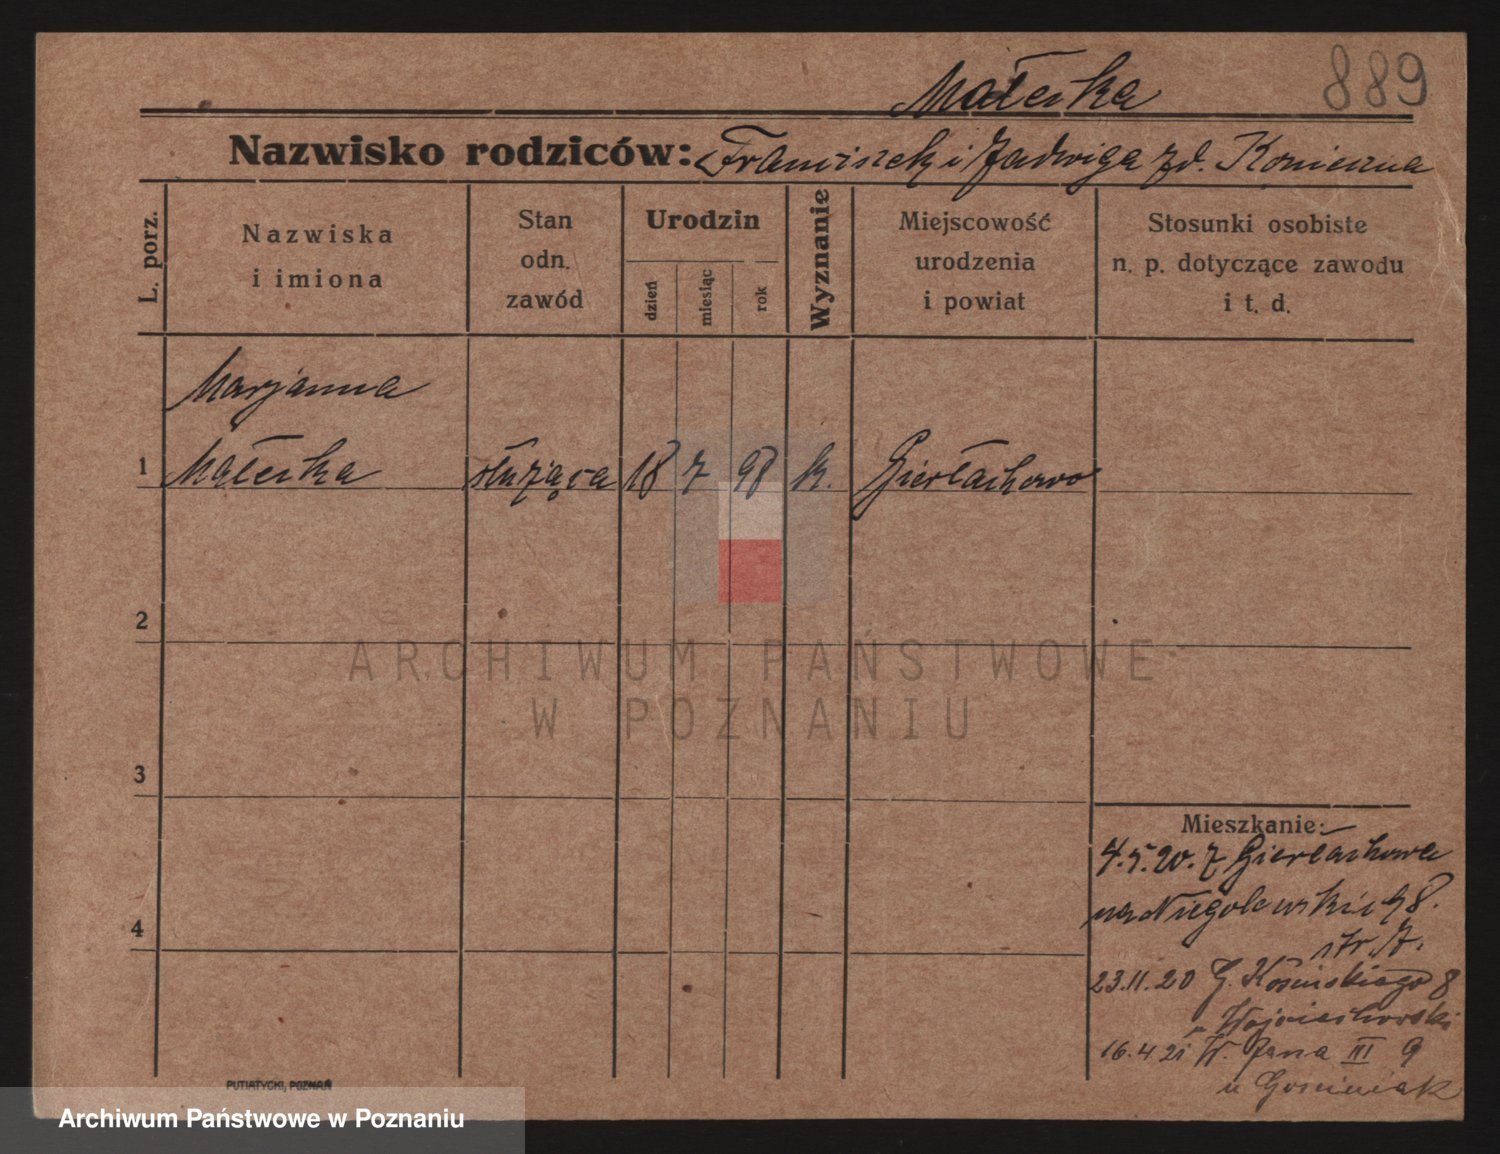 889
Małecka
Nazwisko rodziców: Franciszek i Jadwiga zd. Konieczna
L. porz.
Nazwiska
i imiona
Stan
odn.
zawód
Urodzin
dzień
miesiąc
rok
Wyznanie
Miejscowość
urodzenia
i powiat
Stosunki osobiste
n. p. dotyczące zawodu
i t. d.
Marjanna
1 Małecka służąca 18 7 98 k. Gierłachowo
2
ARCHIWUM PAŃSTWOWE
W POZNANIU
3
Mieszkanie:
4.5.20. z Gierłachowa
na Niegolewskich 8.
4
str.
23.11.20 G. Kosińskiego 8
Wojciechowski
16.4 21 W. Jana III 9
u Gościniak
PUTIATYCKI, POZNAŃ
Archiwum Państwowe w Poznaniu